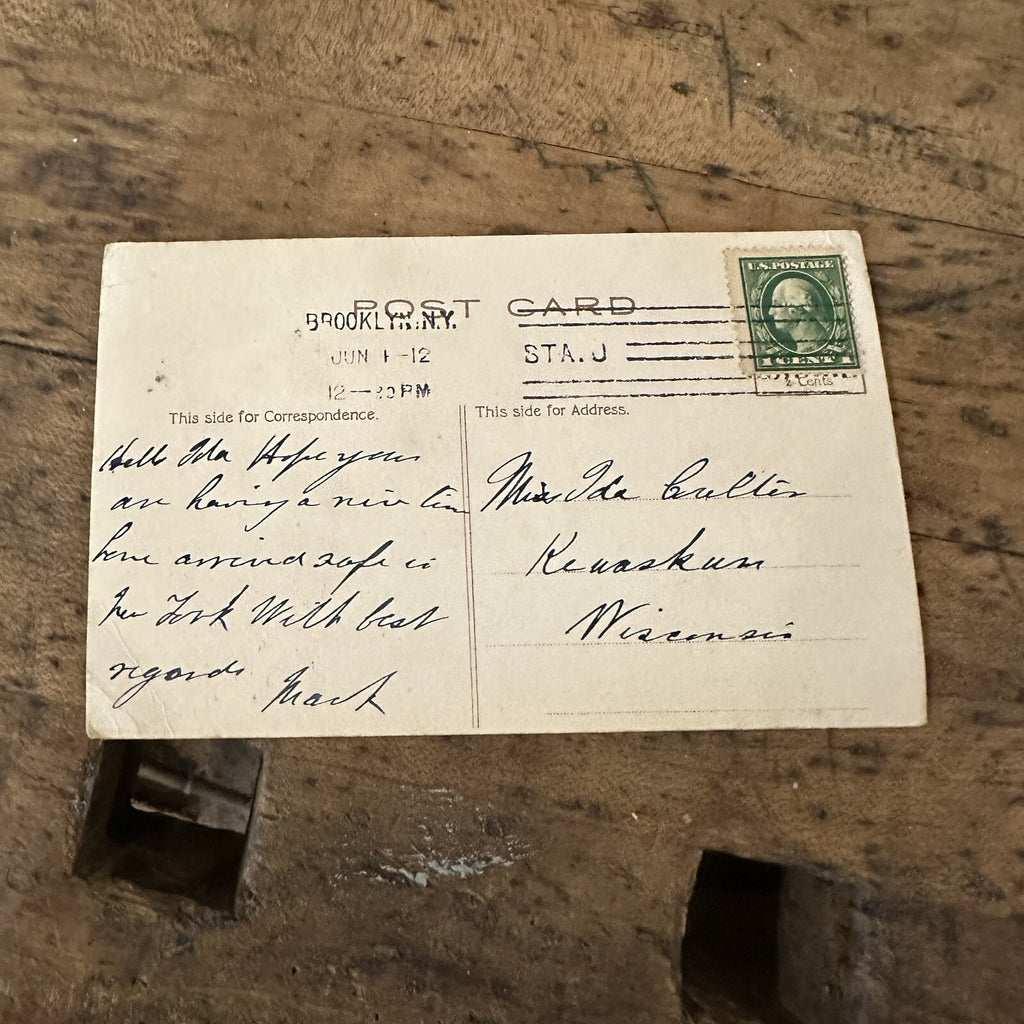 POST CARD
U.S. POSTAGE
1 CENT 1
BROOKLYN. N.Y.
JUN 1-12
12— PM
STA. J
2 Cents
This side for Correspondence.
This side for Address.
Hello Ida Hope you
are having a nice time
have arrived safe in
New York With best
regards
Mark
Miss Ida
Kewaskum
Wisconsin